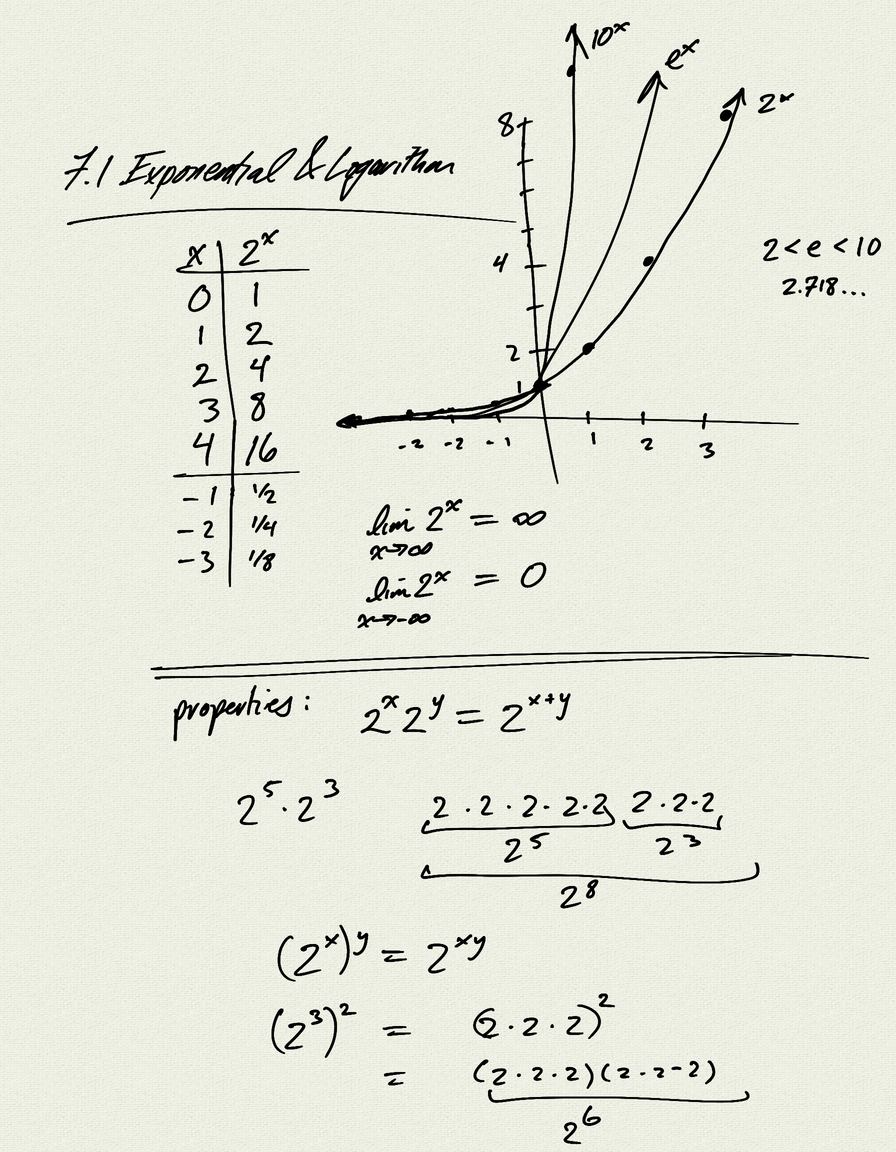 7.1 Exponential & Logarithm
x 2ˣ
0 1
1 2
2 4
3 8
4 16
-1 1/2
-2 1/4
-3 1/8
10ˣ
eˣ
2ˣ
8
4
2
1
-2 -2 -1 1 2 3
2 < e < 10
2.718...
lim 2ˣ = ∞
x→∞
lim 2ˣ = 0
x→-∞
properties: 2ˣ 2ʸ = 2ˣ⁺ʸ
2⁵ · 2³ 2 · 2 · 2 · 2 · 2 2 · 2 · 2
2⁵ 2³
2⁸
(2ˣ)ʸ = 2ˣʸ
(2³)² = (2 · 2 · 2)²
= (2 · 2 · 2)(2 · 2 - 2)
2⁶